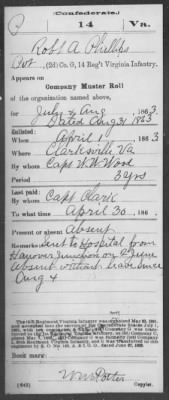 (Confederate.)
P 14 Va.
Robt A Phillips
Pvt, (2d) Co. G, 14 Reg't Virginia Infantry.
Appears on
Company Muster Roll
of the organization named above,
for July & Aug, 1863
Dated Aug 31 1863
Enlisted:
When April 1, 1863
Where Clarksville Va
By whom Capt W.W. Wood
Period 3 yrs
Last paid:
By whom Capt Clark
To what time April 30, 186
Present or absent Absent
Remarks: Sent to Hospital from
Hanover Junction on June
Absent without leave since
Aug 4
Book mark:
(642) Copyist.